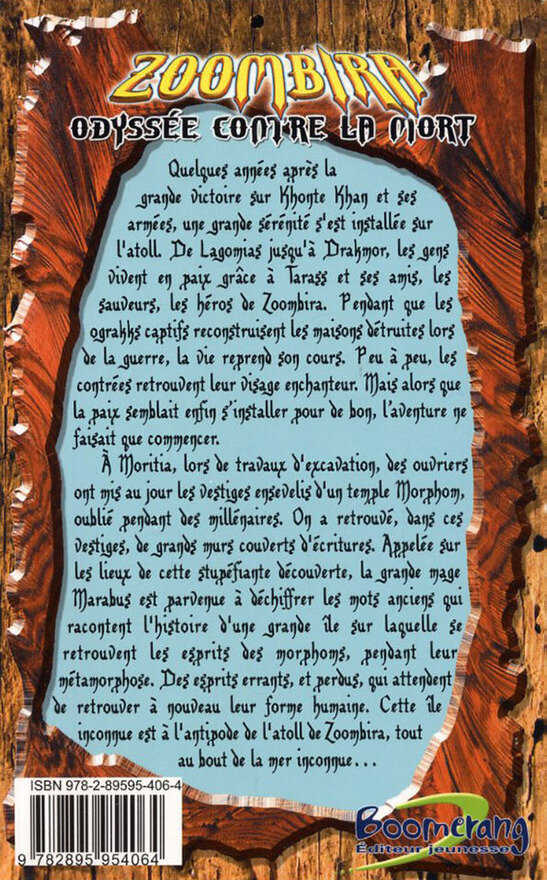 ZOOMBIRA
ODYSSÉE CONTRE LA MORT
Quelques années après la
grande victoire sur Khonte Khan et ses
armées, une grande sérénité s'est installée sur
l'atoll. De Lagomias jusqu'à Drakmor, les gens
vivent en paix grâce à Tarass et ses amis, les
sauveurs, les héros de Zoombira. Pendant que les
ograkks captifs reconstruisent les maisons détruites lors
de la guerre, la vie reprend son cours. Peu à peu, les
contrées retrouvent leur visage enchanteur. Mais alors que
la paix semblait enfin s'installer pour de bon, l'aventure ne
faisait que commencer.
À Moritia, lors de travaux d'excavation, des ouvriers
ont mis au jour les vestiges ensevelis d'un temple Morphom,
oublié pendant des millénaires. On a retrouvé, dans ces
vestiges, de grands murs couverts d'écritures. Appelée sur
les lieux de cette stupéfiante découverte, la grande mage
Marabus est parvenue à déchiffrer les mots anciens qui
racontent l'histoire d'une grande île sur laquelle se
retrouvent les esprits des morphoms, pendant leur
métamorphose. Des esprits errants, et perdus, qui attendent
de retrouver à nouveau leur forme humaine. Cette île
inconnue est à l'antipode de l'atoll de Zoombira, tout
au bout de la mer inconnue...
ISBN 978-2-89595-406-4
9 782895 954064
Boomerang
Éditeur jeunesse